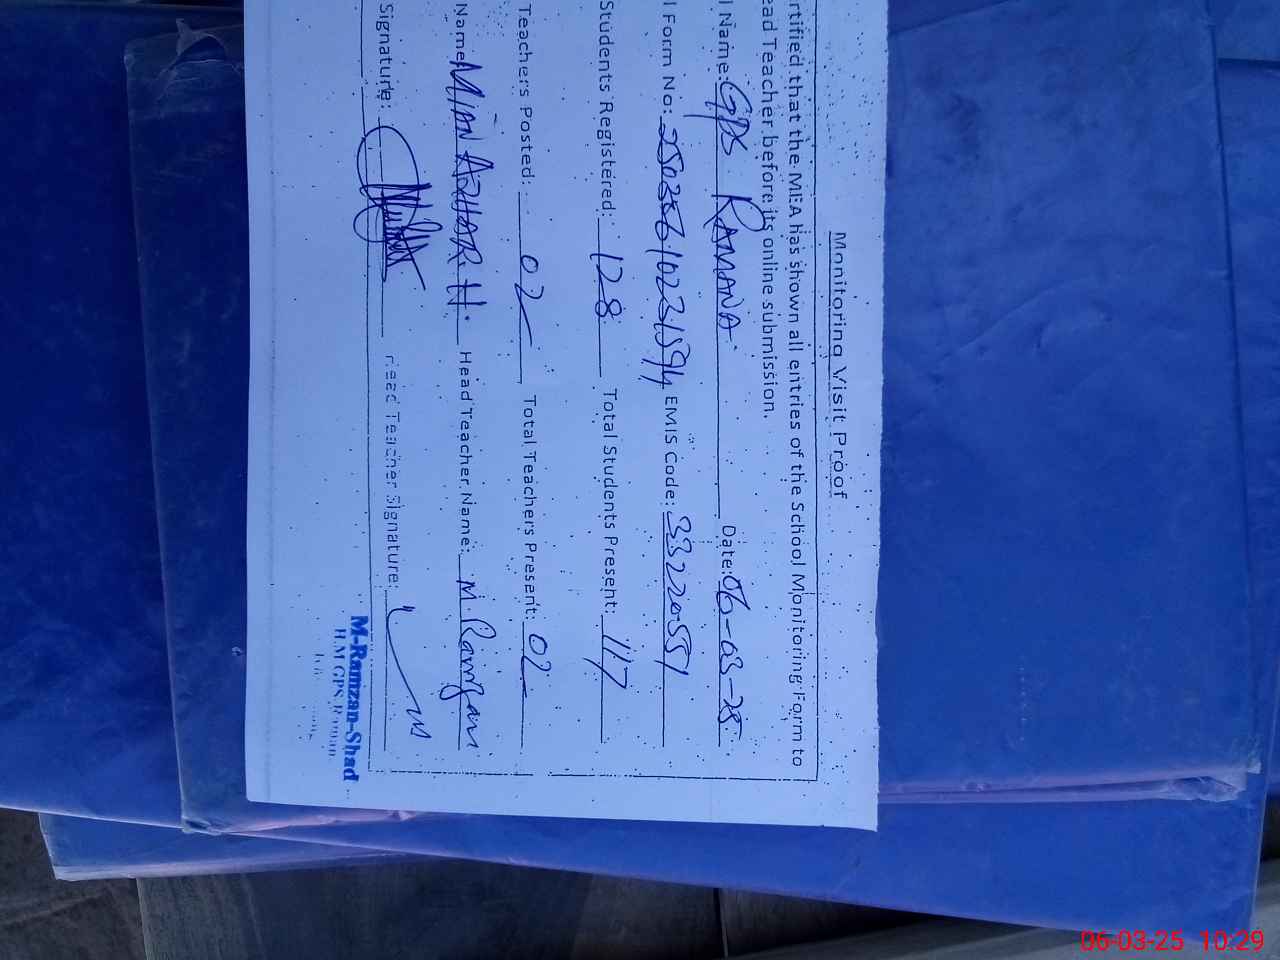 Monitoring Visit Proof
rtified that the MEA has shown all entries of the School Monitoring Form to
ead Teacher before its online submission.
l Name: GPS RAMANA Date: 06-03-25
l Form No: EMIS Code: 33220551
Students Registered: 128 Total Students Present: 117
Teachers Posted: 02 Total Teachers Present: 02
Name MIAN AZHAR H. Head Teacher Name: M. Ramzan
Signature: Head Teacher Signature:
M-Ramzan-Shad
H.M GPS Raman
06-03-25 10:29